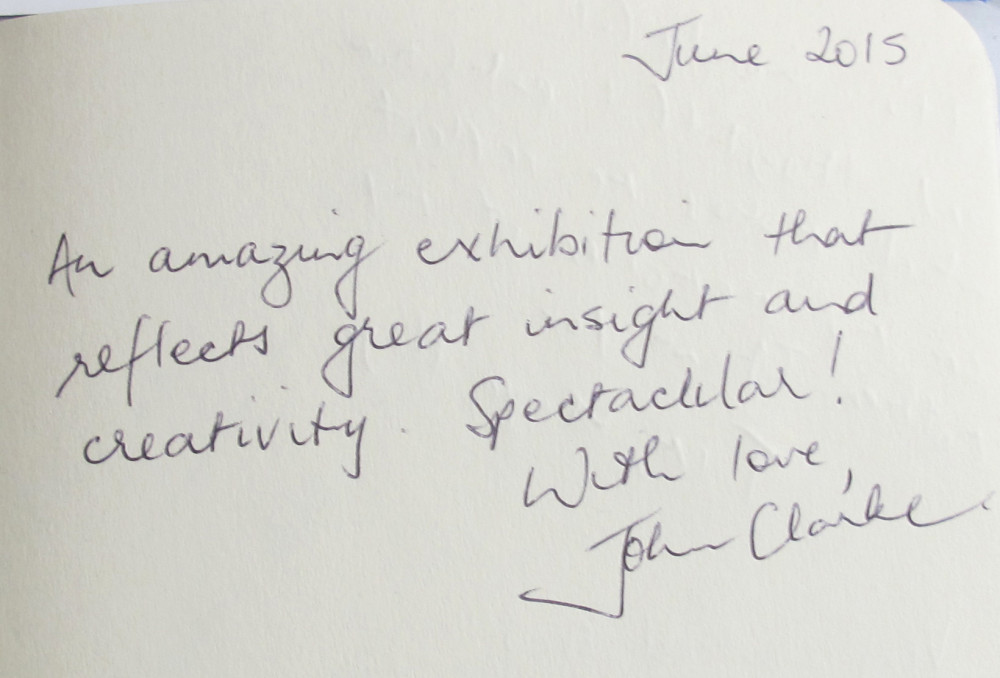 June 2015
An amazing exhibition that
reflects great insight and
creativity. Spectacular!
With love,
John Clarke.